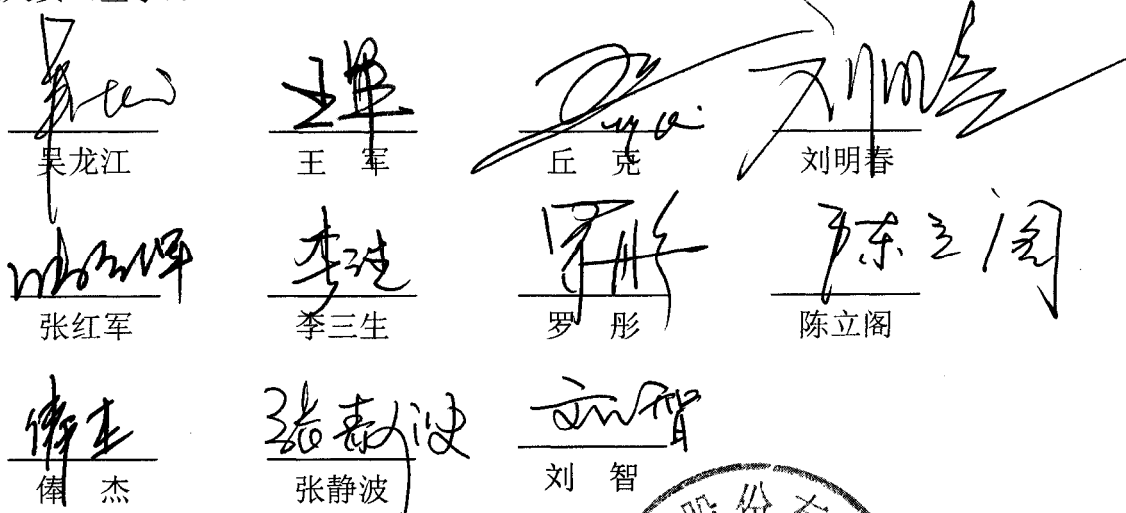 吴龙江 王 军 丘 克 刘明春
张红军 李三生 罗 彤 陈立阁
俸 杰 张静波 刘 智
股份有